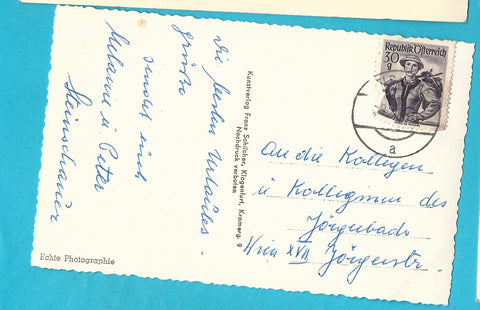 Die besten Urlaubs-
grüße
sendet euch
Melanie u Peter
Steinschauer
Echte Photographie
Kunstverlag Franz Schilcher, Klagenfurt, Kramerg. 9
Nachdruck verboten
Republik Österreich
30
g
a
An die Kollegen
u Kolleginnen des
Jörgerbads
Wien XVII Jörgerstr.